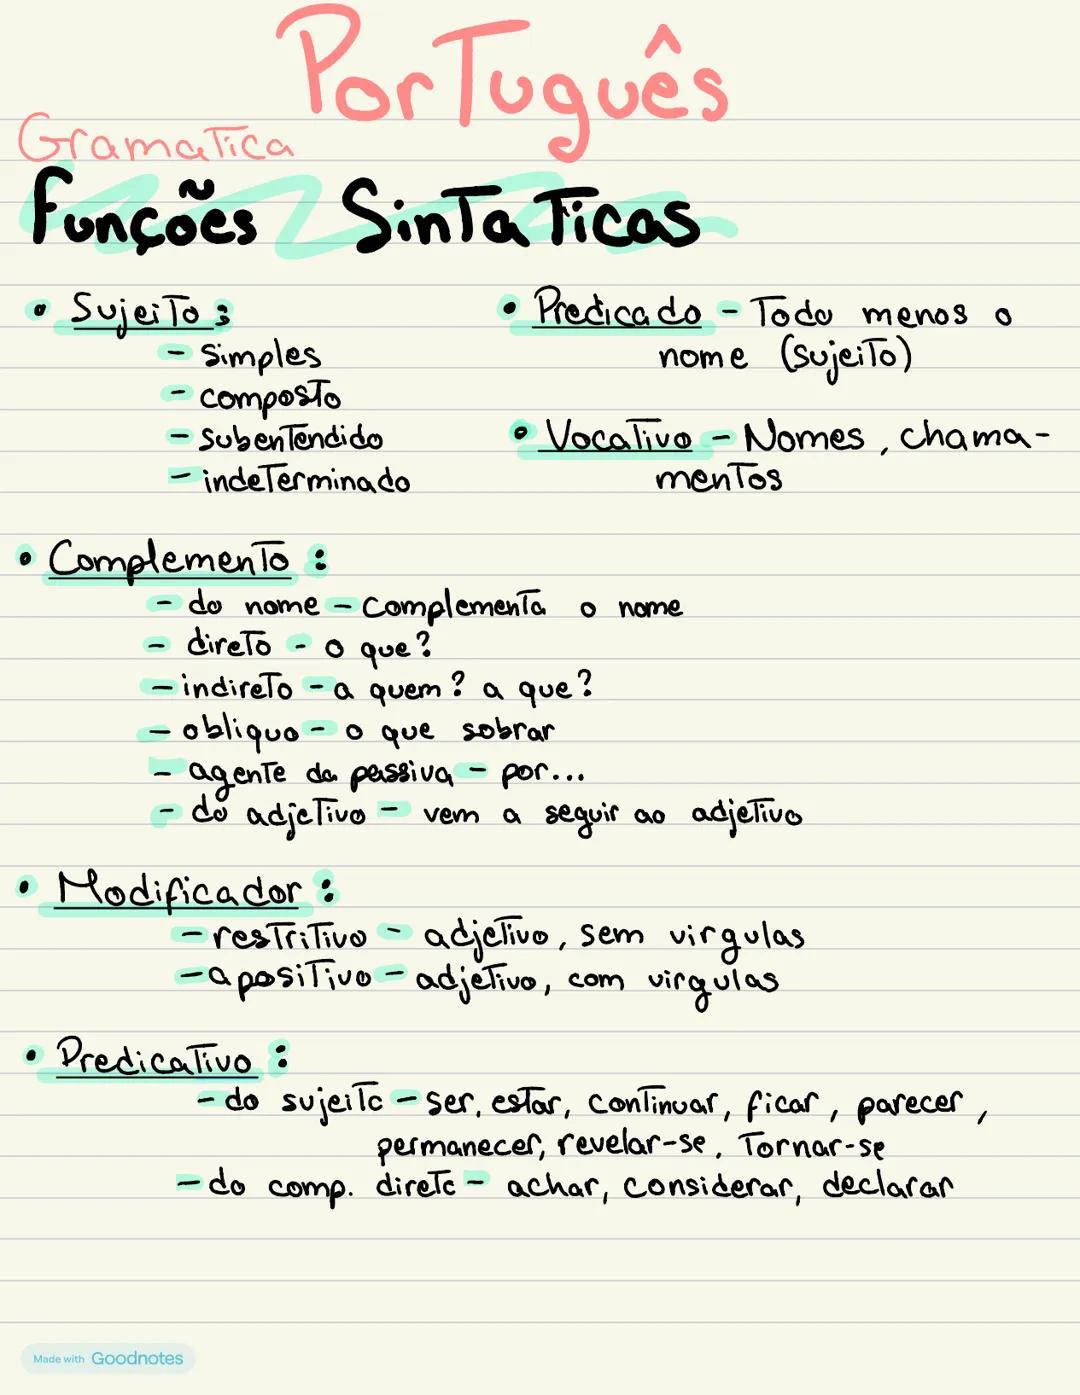 Português
Gramatica
Funções Sintaticas
• Sujeito:
- simples
- composto
- subentendido
- indeterminado
• Predicado - Todo menos o
nome (sujeito)
• Vocativo - Nomes, chama-
mentos
• Complemento:
- do nome - complementa o nome
- direto - o que?
- indireto - a quem? a que?
- obliquo - o que sobrar
- agente da passiva - por...
- do adjetivo - vem a seguir ao adjetivo
• Modificador:
- restritivo - adjetivo, sem virgulas
- apositivo - adjetivo, com virgulas
• Predicativo:
- do sujeito - ser, estar, continuar, ficar, parecer,
permanecer, revelar-se, tornar-se
- do comp. direto - achar, considerar, declarar
Made with Goodnotes